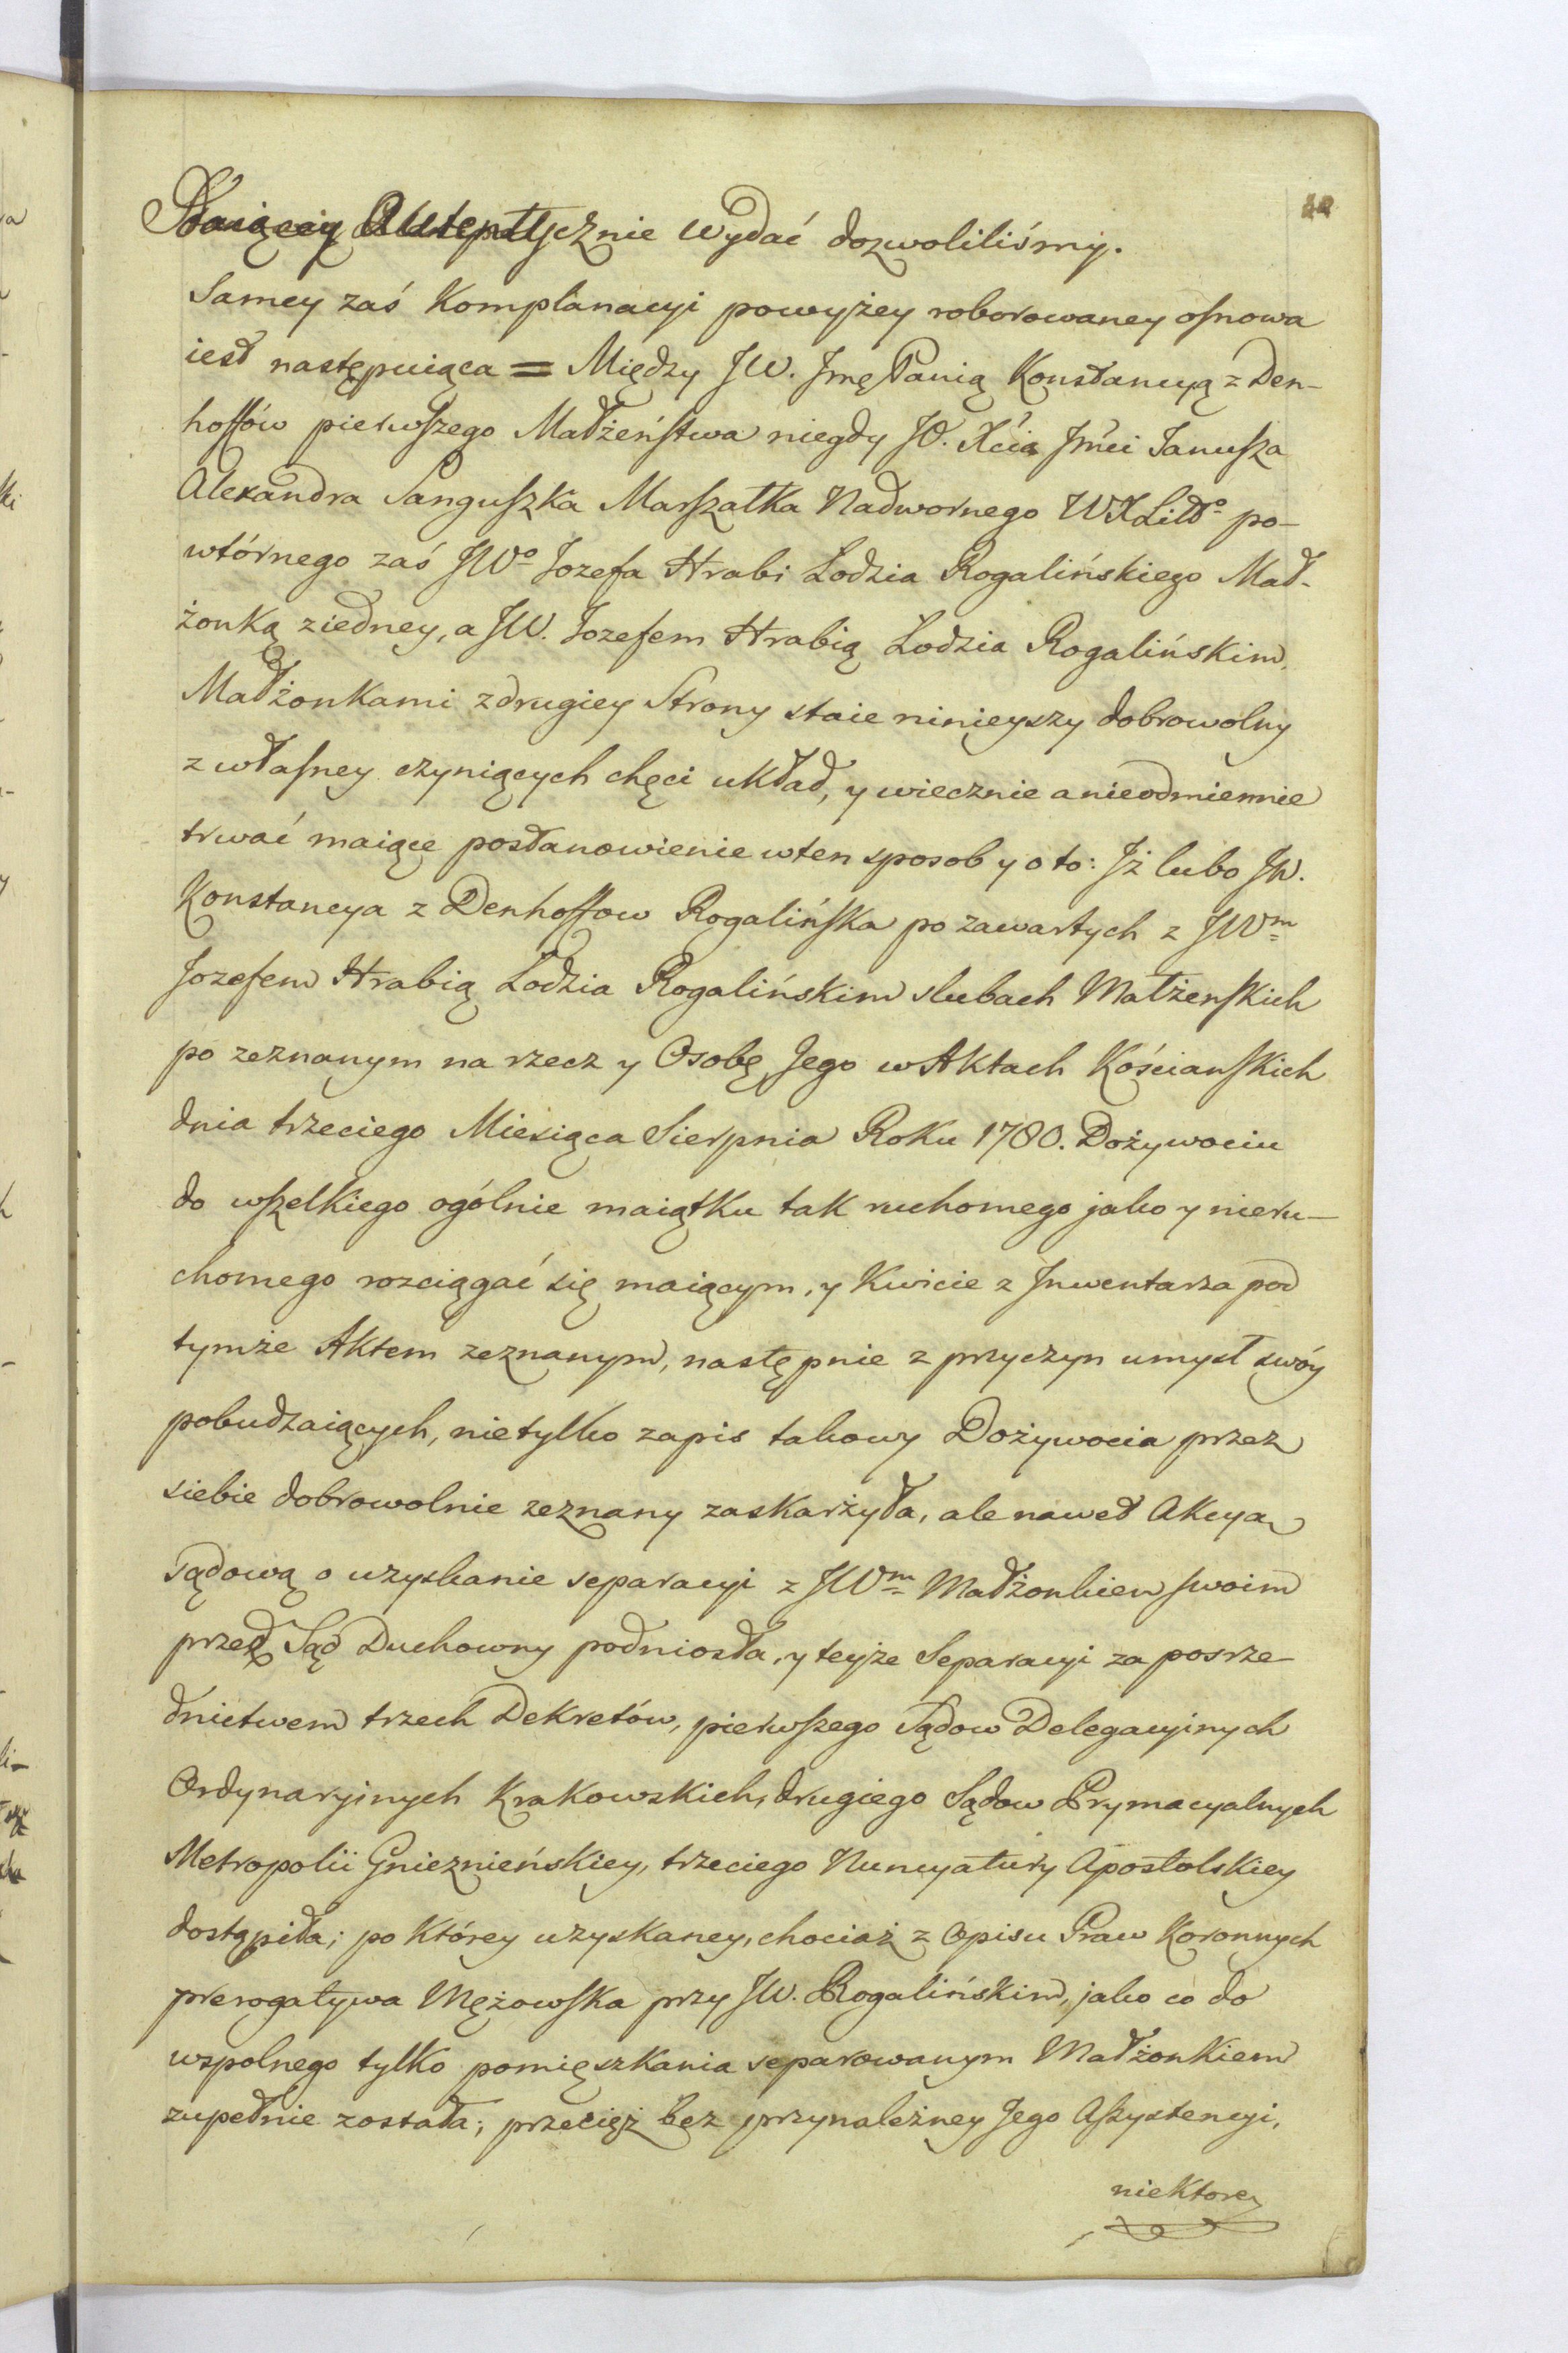 12
Autentycznie wydać dozwoliliśmy.
Samey zaś Komplanacyi powyżey roborowaney osnowa
iest następuiąca = Między JW. Jmę Panią Konstancyą z Den-
hoffów pierwszego Małżeństwa niegdy JO. Xcia Jmci Janusza
Alexandra Sanguszka Marszałka Nadwornego WXLitto po-
wtórnego zaś JWo Jozefa Hrabi Lodzia Rogalińskiego Mał-
żonką ziedney, a JW. Jozefem Hrabią Lodzia Rogalińskim
Małżonkami z drugiey Strony staie ninieyszy dobrowolny
z własney czyniących chęci układ, y wiecznie a nieodmiennie
trwać maiące postanowienie w ten sposob y o to: Jż lubo JW.
Konstancya z Denhoffow Rogalińska po zawartych z JWm
Jozefem Hrabią Lodzia Rogalińskim slubach Małżenskich
po zeznanym na rzecz y Osobę Jego w Aktach Kościanskich
dnia trzeciego Miesiąca Sierpnia Roku 1780. Dożywociu
do wszelkiego ogólnie maiątku tak ruchomego jako y nieru-
chomego rozciągać się maiącym, y Kwicie z Jnwentarza pod
tymże Aktem zeznanym, następnie z przyczyn umysł swóy
pobudzaiących, nietylko zapis takowy Dożywocia przez
siebie dobrowolnie zeznany zaskarżyła, ale nawet Akcyą
sądową o uzyskanie separacyi z JWm Małżonkiem swoim
przed Sąd Duchowny podniosła, y teyże Separacyi za posrze-
dnictwem trzech Dekretów, pierwszego Sądow Delegacyinych
Ordynaryinych Krakowskich, drugiego Sądow Prymacyalnych
Metropolii Gnieznieńskiey, trzeciego Nuncyatury Apostolskiey
dostąpiła; po Którey uzyskaney, chociaż z Opisu Praw Koronnych
prerogatywa Mężowska przy JW. Rogalińskim, jako co do
wspolnego tylko pomięszkania separowanym Małżonkiem
zupełnie została; przecięż bez przynależney Jego Assystencyi,
niektore